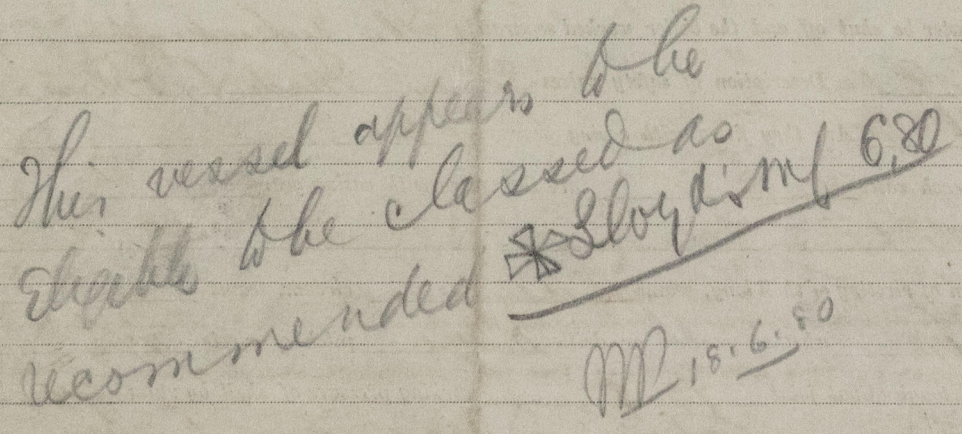 This vessel appears to be
Eligible to be classed as
recommended ✠ Lloyds MC 6,80
18.6.80